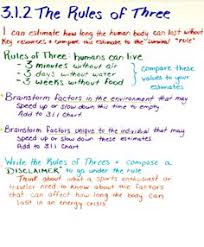 3.1.2 The Rules of Three
I can estimate how long the human body can last without
key resources & compare this estimate to the "survival" "rule"
Rules of Three humans can live
- 3 minutes without air
- 3 days without water
- 3 weeks without food
compare these
values to your
estimates
• Brainstorm Factors in the environment that may
Speed up or slow down this time to empty
Add to 3.1.1 Chart
• Brainstorm Factors unique to the individual that may
Speed up or slow down these estimates
Add to 3.1.1 Chart
Write the Rules of Threes & compose a
"DISCLAIMER" to go under the rule
Think about what a sports enthusiast or
traveler need to know about the factors
that can affect how long the body can
last in an energy crisis